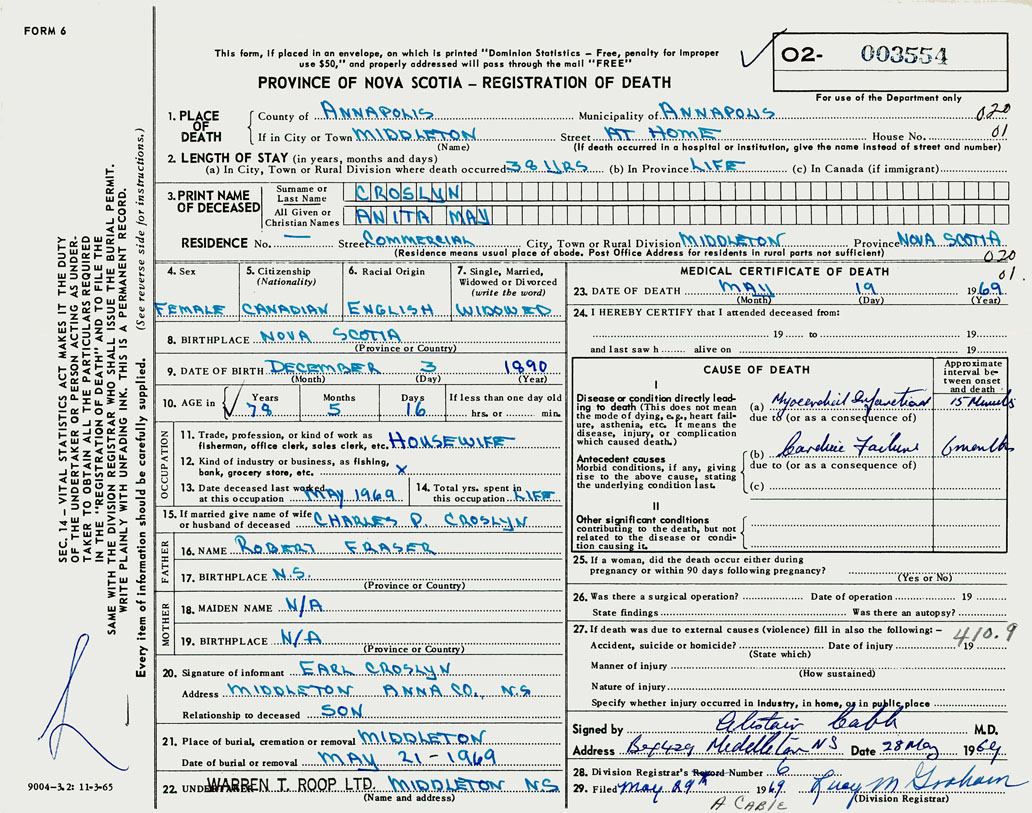 FORM 6
This form, if placed in an envelope, on which is printed "Dominion Statistics – Free, penalty for improper
use $50," and properly addressed will pass through the mail "FREE"
PROVINCE OF NOVA SCOTIA – REGISTRATION OF DEATH
O2- 003554
For use of the Department only
1. PLACE OF DEATH
County of ANNAPOLIS Municipality of ANNAPOLIS 020
If in City or Town MIDDLETON Street AT HOME House No. 01
(Name) (If death occurred in a hospital or institution, give the name instead of street and number)
2. LENGTH OF STAY (in years, months and days)
(a) In City, Town or Rural Division where death occurred 38 YRS (b) In Province LIFE (c) In Canada (if immigrant)
3. PRINT NAME OF DECEASED
Surname or Last Name CROSLYN
All Given or Christian Names ANITA MAY
RESIDENCE No. — Street COMMERCIAL City, Town or Rural Division MIDDLETON Province NOVA SCOTIA
(Residence means usual place of abode. Post Office Address for residents in rural parts not sufficient) 020
01
4. Sex
FEMALE
5. Citizenship (Nationality)
CANADIAN
6. Racial Origin
ENGLISH
7. Single, Married, Widowed or Divorced (write the word)
WIDOWED
8. BIRTHPLACE NOVA SCOTIA
(Province or Country)
9. DATE OF BIRTH DECEMBER 3 1890
(Month) (Day) (Year)
10. AGE in Years Months Days If less than one day old
78 5 16 hrs. or min.
OCCUPATION
11. Trade, profession, or kind of work as
fisherman, office clerk, sales clerk, etc. HOUSEWIFE
12. Kind of industry or business, as fishing,
bank, grocery store, etc. X
13. Date deceased last worked
at this occupation MAY 1969
14. Total yrs. spent in
this occupation LIFE
15. If married give name of wife
or husband of deceased CHARLES P. CROSLYN
FATHER
16. NAME ROBERT FRASER
17. BIRTHPLACE N.S.
(Province or Country)
MOTHER
18. MAIDEN NAME N/A
19. BIRTHPLACE N/A
(Province or Country)
20. Signature of informant EARL CROSLYN
Address MIDDLETON ANNA CO., N.S
Relationship to deceased SON
21. Place of burial, cremation or removal MIDDLETON
Date of burial or removal MAY 21-1969
22. WARREN T. ROOP LTD. MIDDLETON N.S
(Name and address)
MEDICAL CERTIFICATE OF DEATH
23. DATE OF DEATH MAY 19 1969
(Month) (Day) (Year)
24. I HEREBY CERTIFY that I attended deceased from:
19 to 19
and last saw h alive on 19
CAUSE OF DEATH
Approximate interval between onset and death
I
Disease or condition directly leading to death (This does not
mean the mode of dying, e.g., heart failure, asthenia, etc. It means the
disease, injury, or complication
which caused death.)
(a) Myocardial Infarction 15 Minutes
due to (or as a consequence of)
Antecedent causes
Morbid conditions, if any, giving
rise to the above cause, stating
the underlying condition last.
(b) Cardiac Failure 6 months
due to (or as a consequence of)
(c)
II
Other significant conditions
contributing to the death, but not
related to the disease or condition causing it.
25. If a woman, did the death occur either during
pregnancy or within 90 days following pregnancy?
(Yes or No)
26. Was there a surgical operation? Date of operation 19
State findings Was there an autopsy?
27. If death was due to external causes (violence) fill in also the following: – 410.9
Accident, suicide or homicide? Date of injury 19
(State which)
Manner of injury
(How sustained)
Nature of injury
Specify whether injury occurred in Industry, in home, or in public place
Signed by Alistair M.D.
Address Box 429 Middleton NS Date 28 May 1969
28. Division Registrar's Record Number 6
29. Filed May 29th 1969 Lucy M Graham
(Division Registrar)
SEC. 14 – VITAL STATISTICS ACT MAKES IT THE DUTY
OF THE UNDERTAKER OR PERSON ACTING AS UNDER-
TAKER TO OBTAIN ALL THE PARTICULARS REQUIRED
IN THE "REGISTRATION OF DEATH" AND TO FILE THE
SAME WITH THE DIVISION REGISTRAR WHO SHALL ISSUE THE BURIAL PERMIT.
WRITE PLAINLY WITH UNFADING INK. THIS IS A PERMANENT RECORD.
Every item of information should be carefully supplied. (See reverse side for instructions.)
9004-3.2: 11-3-65